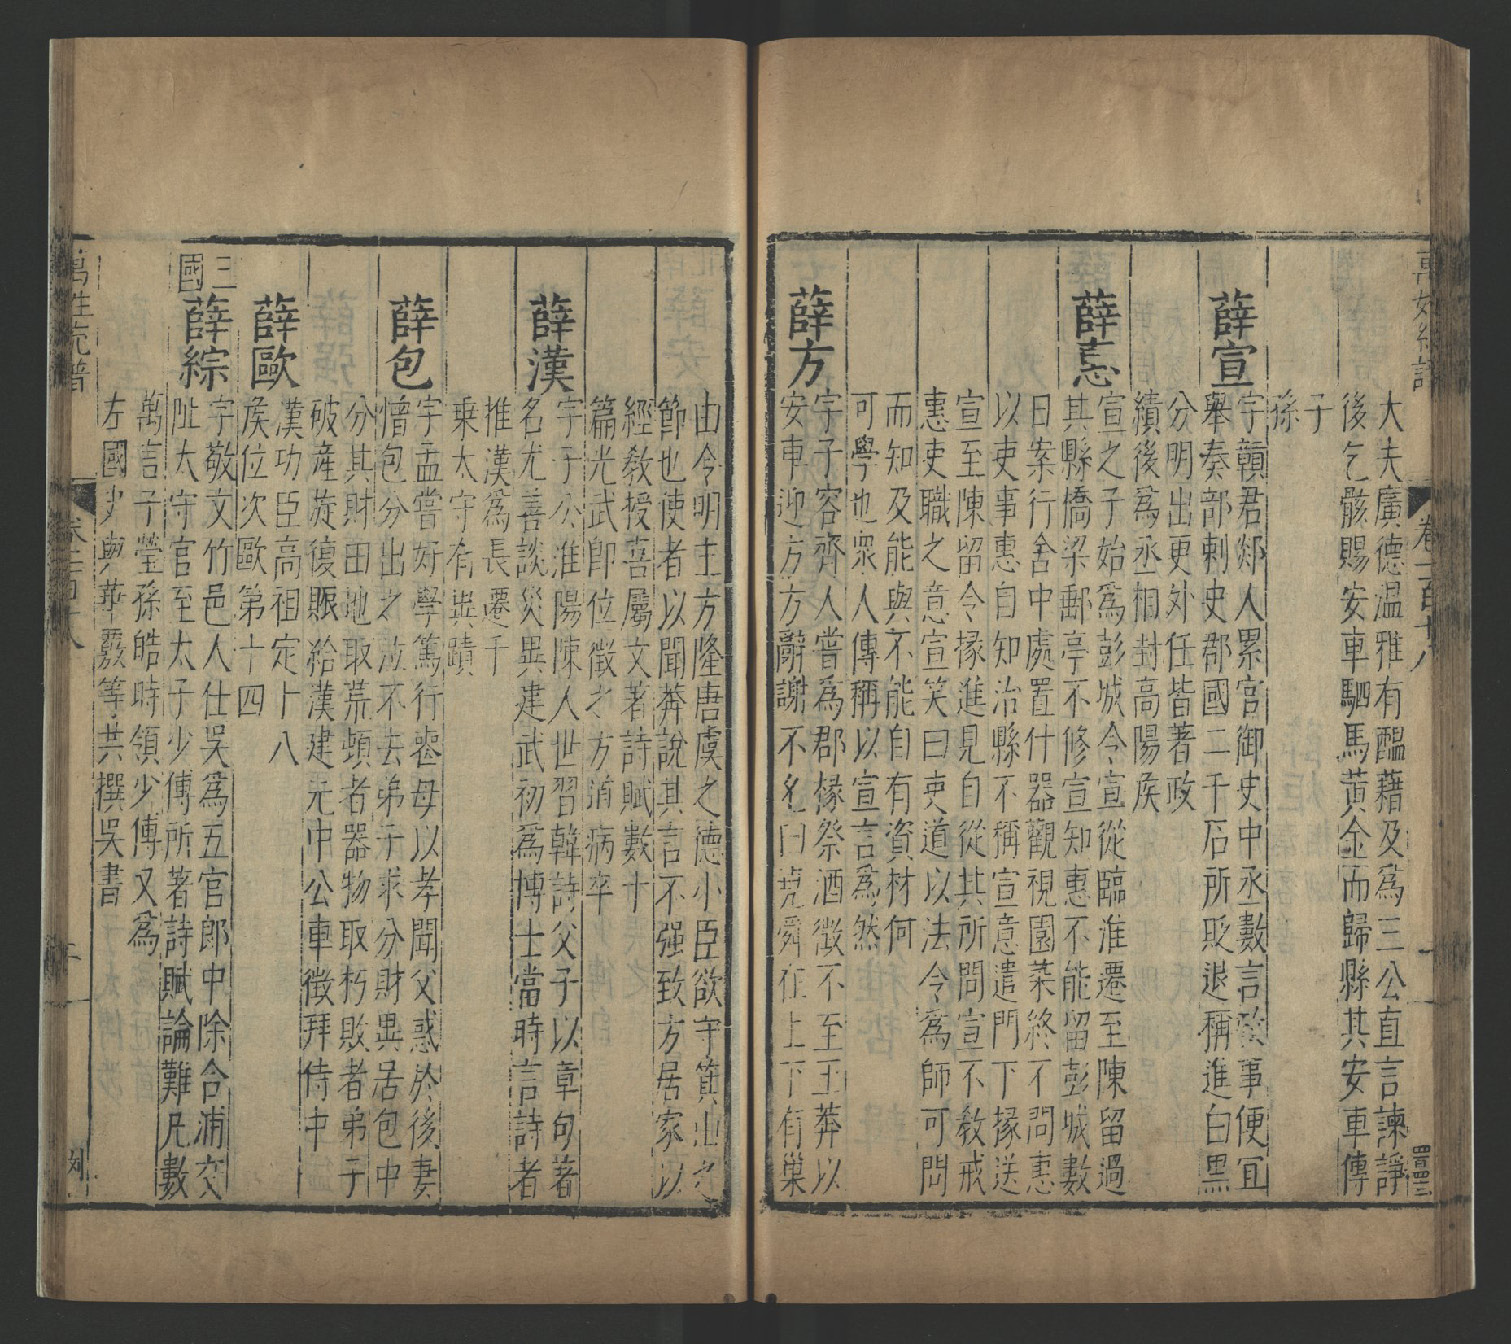 萬姓統譜
卷一百十八
大夫廣德温雅有醞藉及爲三公直言諫諍
後乞骸賜安車駟馬黄金而歸縣其安車傳
子
孫
薛宣
字贛君郯人累官御史中丞數言政事便宜
舉奏部刺史郡國二千石所貶退稱進白黑
分明出更外任皆著政
績後爲丞相封高陽侯
薛惠
宣之子始爲彭城令宣從臨淮遷至陳留過
其縣橋梁郵亭不修宣知惠不能留彭城數
日案行舍中處置什器觀視園菜終不問惠
以吏事惠自知治縣不稱宣意遣門下掾送
宣至陳留令掾進見自從其所問宣不教戒
惠吏職之意宣笑曰吏道以法令為師可問
而知及能與不能自有資材何
可學也眾人傳稱以宣言爲然
薛方
字子容齊人嘗爲郡掾祭酒徵不至王莽以
安車迎方方辭謝不名曰堯舜在上下有巢
由今明主方隆唐虞之德小臣欲守箕山之
節也使者以聞莽說其言不强致方居家以
經教授喜屬文著詩賦數十
篇光武即位徵之方道病卒
薛漢
字子公淮陽陳人世習韓詩父子以章句著
名尤善談災異建武初爲博士當時言詩者
推漢爲長遷千
乗太守有異蹟
薛包
字孟嘗好學篤行喪母以孝聞父惑於後妻
憎包分出之泣不去弟子求分財異居包中
分其財田地取荒頓者器物取朽敗者弟子
破産旋復賑給漢建元中公車徵拜侍中
薛歐
漢功臣高祖定十八
侯位次歐第十四
三國
薛綜
字敬文竹邑人仕吴爲五官郎中除合浦交
阯太守官至太子少傅所著詩賦論難凡數
萬言子瑩孫皓時領少傅又爲
左國史與華覈等共撰吴書
萬姓統譜
卷一百十八
二